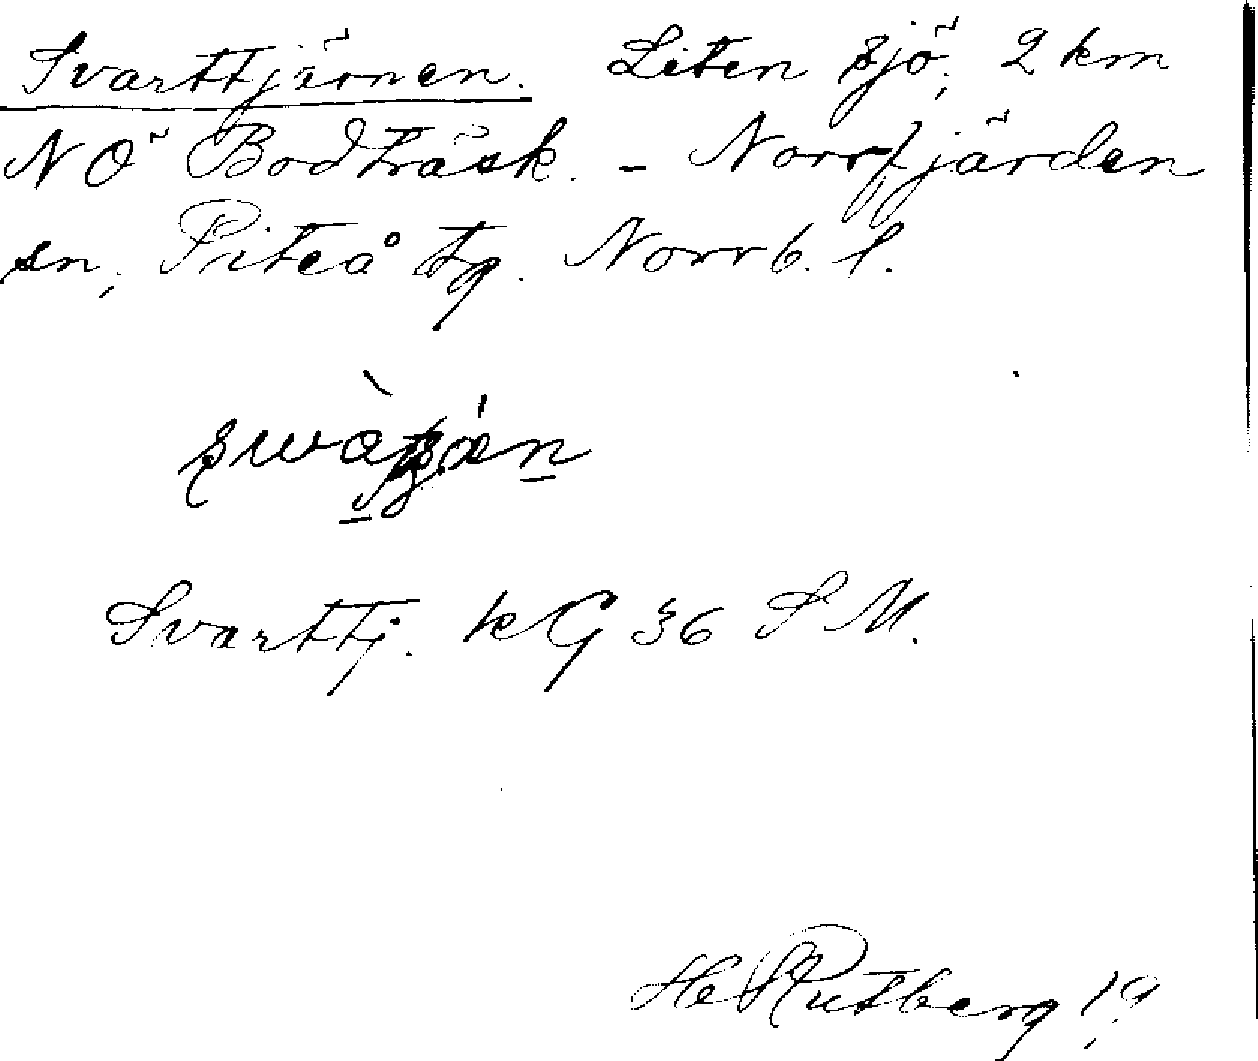 Svarttjärnen. Liten sjö, 2 km
NÖ Bodträsk. - Norrfjärden
sn, Piteå tg. Norrb. l.
Svarttj. kG 36 S M.
Rutberg